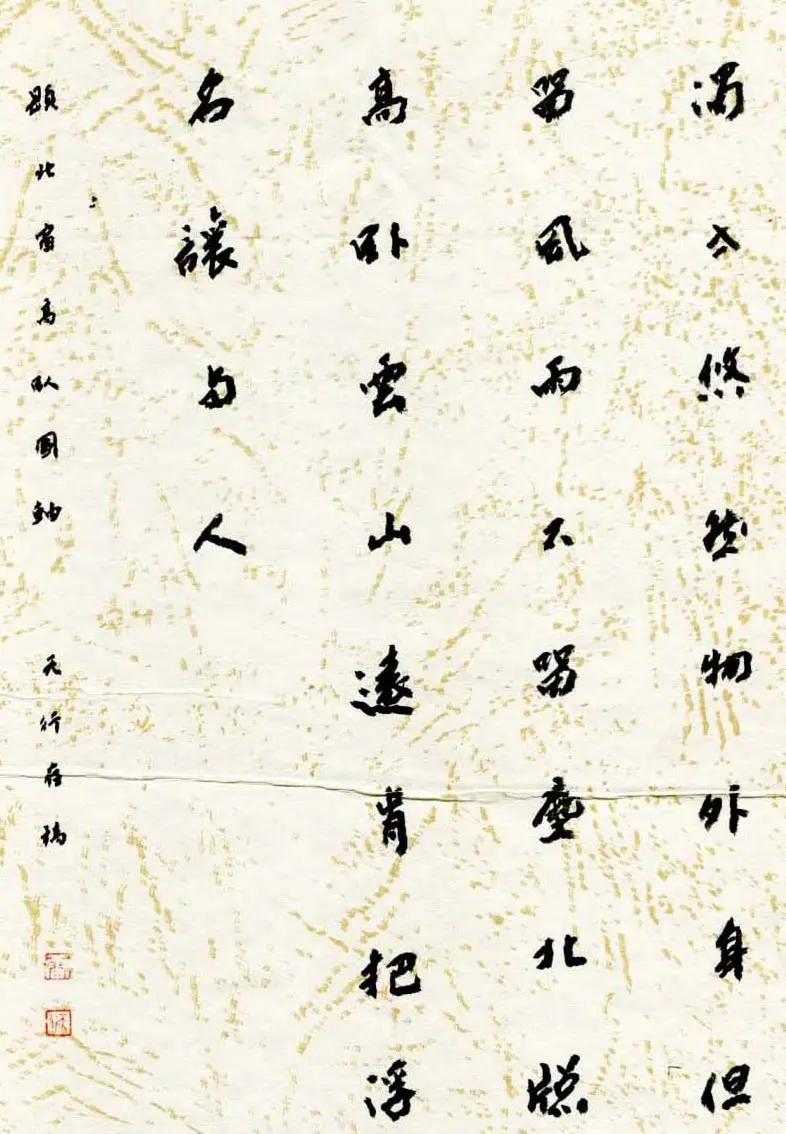 悠然物外身但
留風雨不留塵北牕
高卧雲山遠肯把浮
名讓与人
題北窗高臥圖軸
行存稿